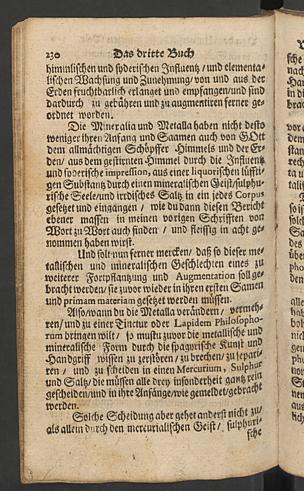 230 Das dritte Buch
himmlischen und syderischen Influentz / und elementa-
lischen Wachsung und Zunehmung / von und aus der
Erden fruchtbarlich erlanget und empfangen / und sind
dardurch zu gebähren und zu augmentiren ferner ge-
ordnet worden.
Die Mineralia und Metalla haben nicht desto
weniger ihren Anfang und Saamen auch von GOtt
dem allmächtigen Schöpffer Himmels und der Er-
den / aus dem gestirnten Himmel durch die Influentz
und syderische impression, aus einer liquorischen lüffti-
gen Substantz durch einen mineralischen Geist / sulphu-
rische Seele / und irdisches Saltz in ein jedes Corpus
gesetzet und eingangen / wie du dann diesen Bericht
ebener massen in meinen vorigen Schrifften von
Wort zu Wort auch finden / und fleissig in acht ge-
nommen haben wirst.
Und solt nun ferner mercken / daß so dieser me-
tallischen und mineralischen Geschlechten eines zu
weiterer Fortpflantzung und Augmentation soll ge-
bracht werden / sie zuvor wieder in ihren ersten Samen
und primam materiam gesetzet werden müssen.
Also / wann du die Metalla verändern / vermeh-
ren / und zu einer Tinctur oder Lapidem Philosopho-
rum bringen wilt / so mustu zuvor die metallische und
mineralische Form durch die spagyrische Kunst und
Handgriff wissen zu zerstören / zu brechen / zu separi-
ren / und zu scheiden in einen Mercurium, Sulphur
und Saltz / die müssen alle drey insonderheit gantz rein
gescheiden / und in ihre Anfänge / wie gemeldet / gebracht
werden.
Solche Scheidung aber gehet anderst nicht zu /
als allein durch den mercurialischen Geist / sulphuri-
sche